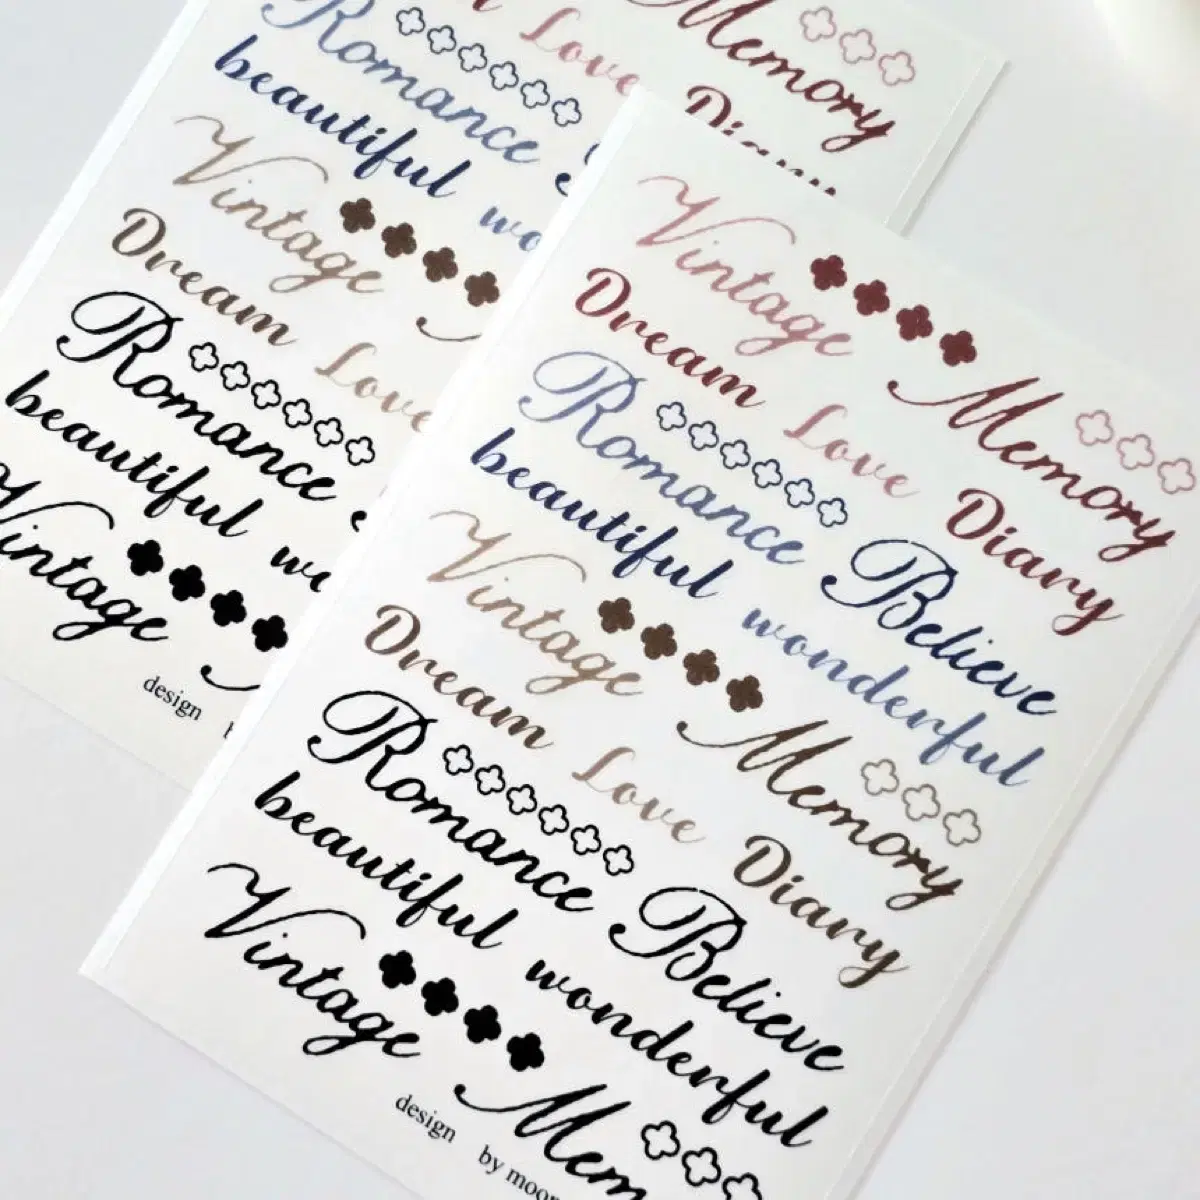 Love Memory
Romance
beautiful wo
Vintage
Dream Love
Romance
beautiful
Vintage
design
Vintage
Dream Love Memory
Romance Diary
beautiful Believe
Vintage wonderful
Dream Love Memory
Romance Diary
beautiful Believe
Vintage wonderful
Mem
design by moon